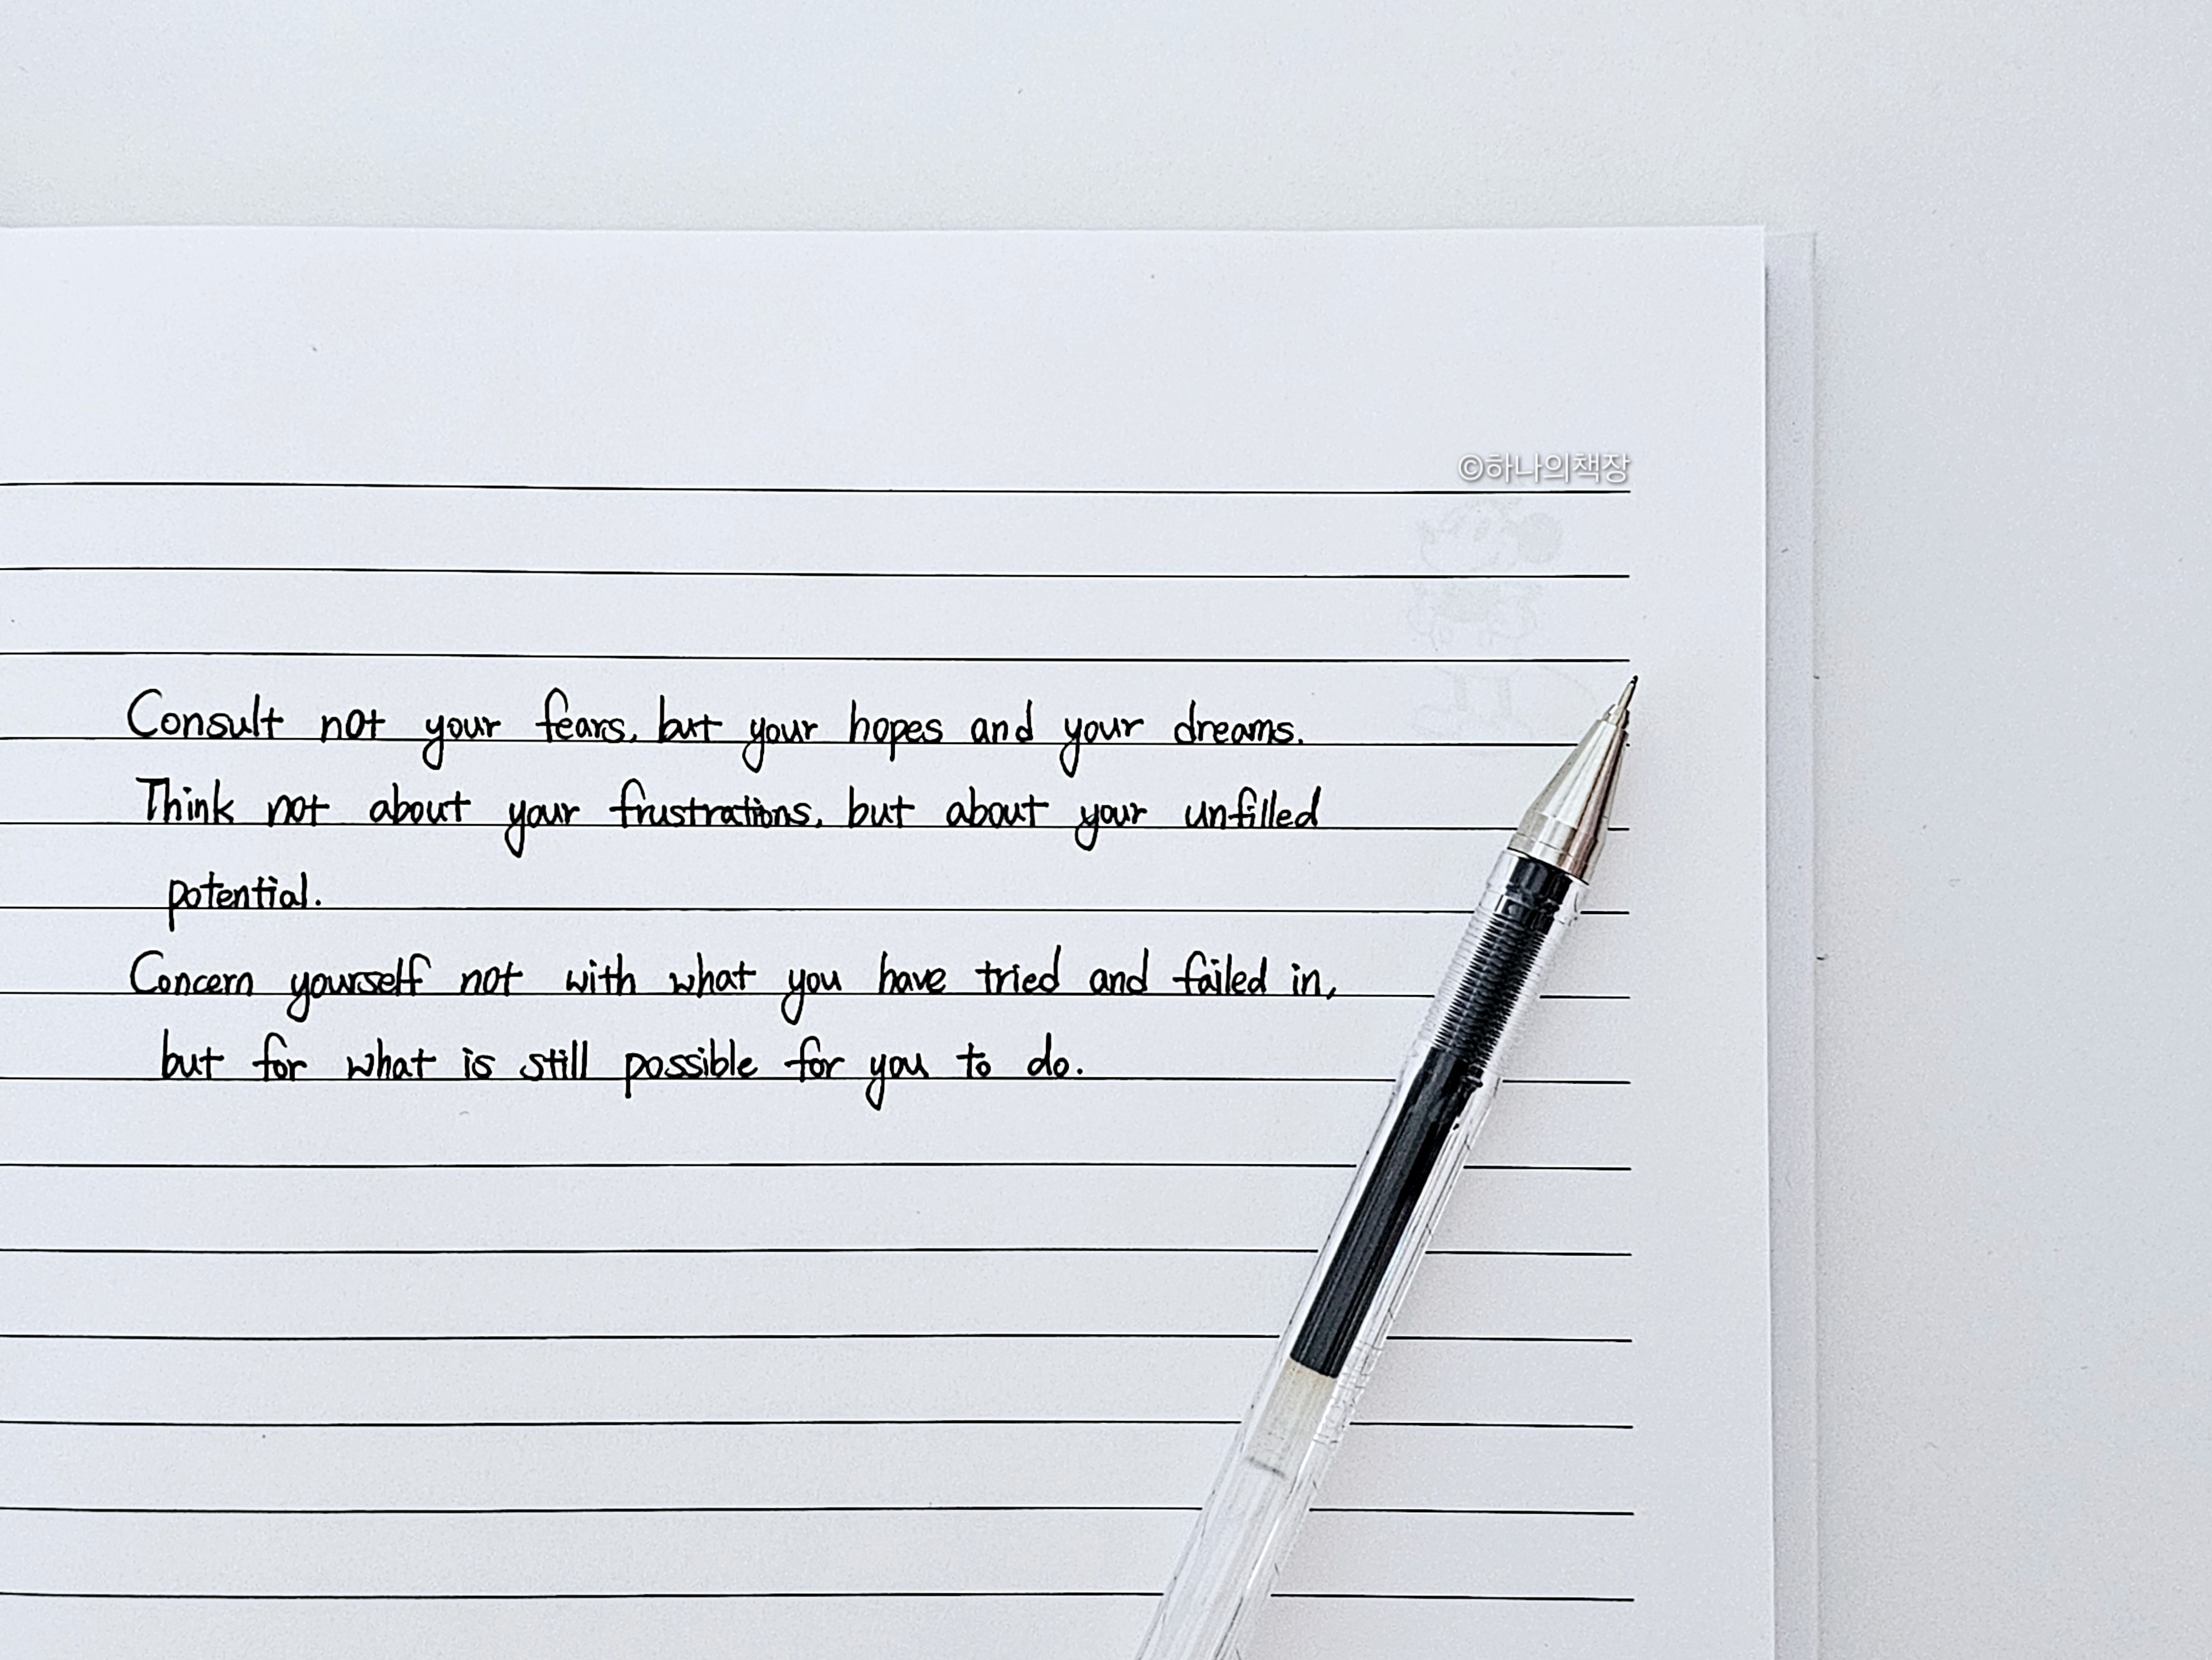 ©하나의책장
Consult not your fears, but your hopes and your dreams.
Think not about your frustrations, but about your unfilled
potential.
Concern yourself not with what you have tried and failed in,
but for what is still possible for you to do.